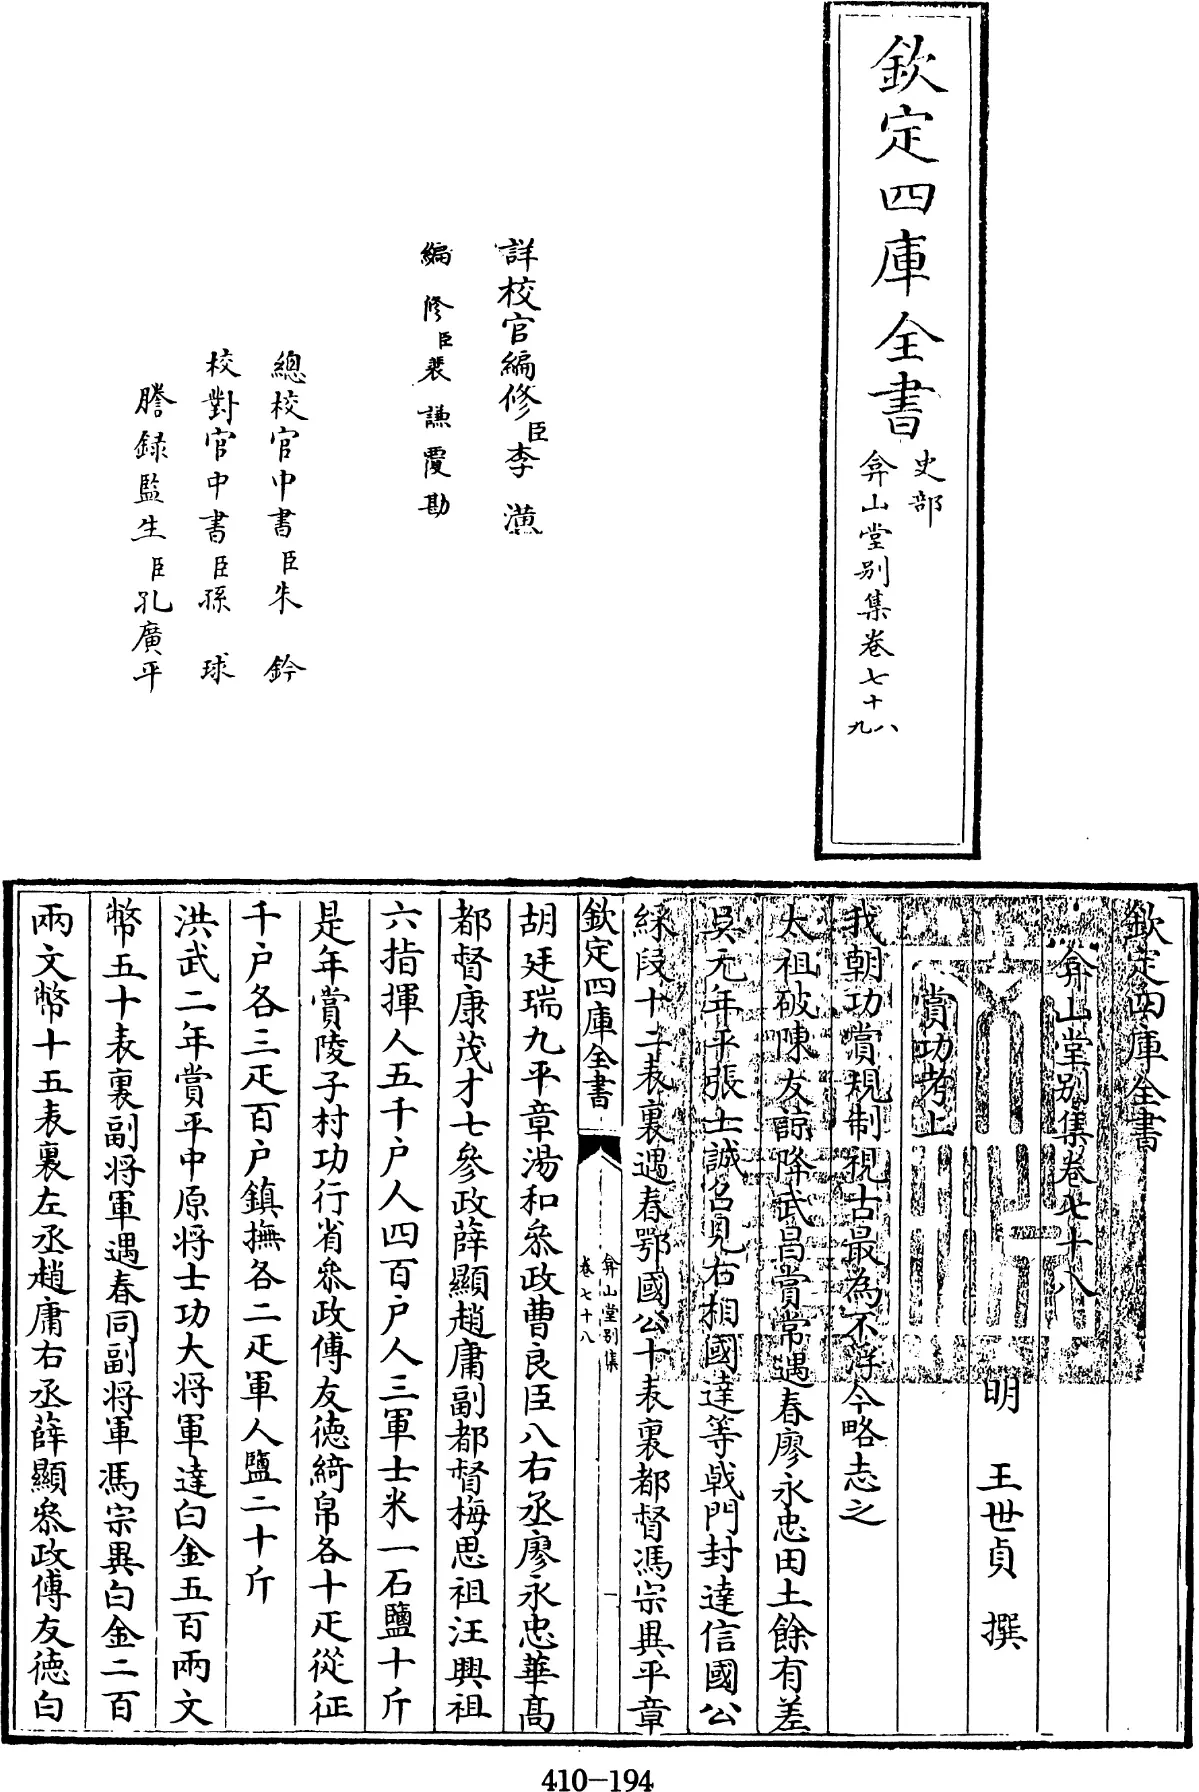 欽定四庫全書
史部
弇山堂别集卷七十八
九
詳校官編修臣李潢
編修臣裴謙覆勘
總校官中書臣朱鈐
校對官中書臣孫球
謄録監生臣孔廣平
欽定四庫全書
弇山堂别集卷七十八
明 王世貞 撰
賞功考上
我朝功賞規制視古最為不浮今略志之
太祖破陳友諒降武昌賞常遇春廖永忠田土餘有差
吳元年平張士誠召見右相國達等戟門封達信國公
綵段十二表裏遇春鄂國公十表裏都督馮宗異平章
欽定四庫全書
弇山堂别集
卷七十八
一
胡廷瑞九平章湯和叅政曹良臣八右丞廖永忠華高
都督康茂才七參政薛顯趙庸副都督梅思祖汪興祖
六指揮人五千户人四百户人三軍士米一石鹽十斤
是年賞陵子村功行省叅政傅友德綺帛各十疋從征
千户各三疋百户鎮撫各二疋軍人鹽二十斤
洪武二年賞平中原将士功大将軍達白金五百兩文
幣五十表裏副将軍遇春同副将軍馮宗異白金二百
兩文幣十五表裏左丞趙庸右丞薛顯叅政傅友德白
410-194